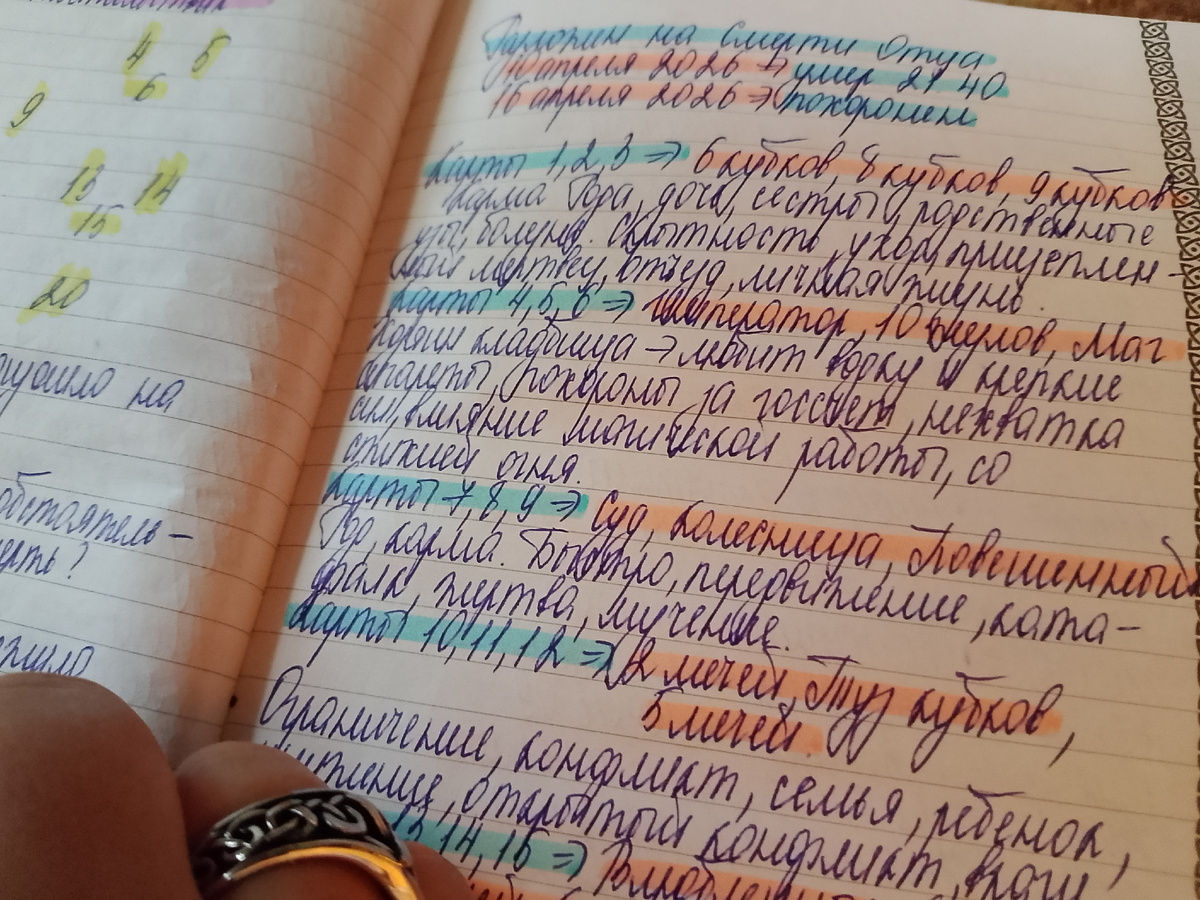 4 5
6
9
13 14
15
20
на
обстоятель-
Расклад на смерть Отца
10 апреля 2026 → умер 21 40
16 апреля 2026 → похоронен
Карты 1, 2, 3 → 6 кубков, 8 кубков, 9 кубков
Карма Рода, дочь, сестры, родственные
узы, болезнь. Скрытность, уход, прицеплен-
мертвец, отъезд, личная жизнь.
Карты 4, 5, 6 → Император, 10 жезлов, Маг
Хозяин кладбища → любит водку и крепкие
сигареты, похороны за госсчет, нехватка
сил, влияние магической работы, со
стихией огня.
Карты 7, 8, 9 → Суд, Колесница, Повешенный
Род, карма. Быстро, передвижение, ката-
фалк, жертва, мучение.
Карты 10, 11, 12 → 2 мечей, Туз кубков,
5 мечей.
Ограничение, конфликт, семья, ребенок,
унижение, открытый конфликт, враги
13, 14, 15 →